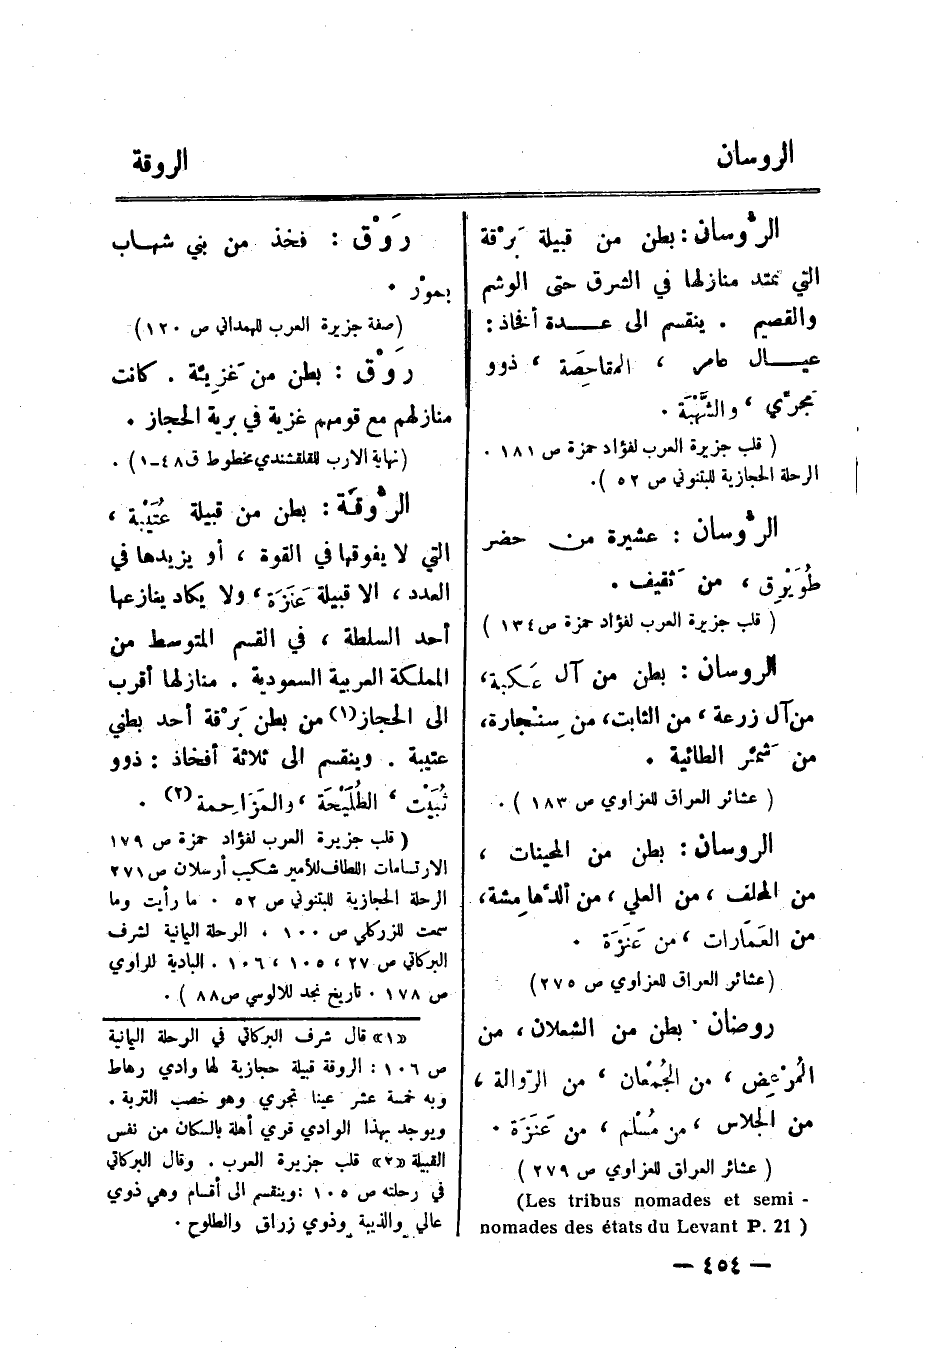 الروسان
الروقة
الرُّوسان : بطن من قبيلة بَرْقة
التي تمتد منازلها في الشرق حتى الوشم
والقصيم . ينقسم الى عدة أفخاذ :
عيال عامر ، المقاحِصَة ، ذوو
مجرّي ، والشَّهْبَة .
( قلب جزيرة العرب لفؤاد حمزة ص ١٨١ .
الرحلة الحجازية للبتنوني ص ٥٢ ) .
الرُّوسان : عشيرة من حضر
طُوَيْرِق ، من ثَقيف .
( قلب جزيرة العرب لفؤاد حمزة ص ١٣٤ )
الروسان : بطن من آل عَكبة ،
من آل زرعة ، من الثابت ، من سِنْجارة ،
من شَمَّر الطائية .
( عشائر العراق للعزاوي ص ١٨٣ ) .
الروسان : بطن من المحينات ،
من المحلف ، من العلي ، من ألدّهامِشة ،
من العَمَارات ، من عَنَزَة .
(عشائر العراق للعزاوي ص ٢٧٥)
روضان . بطن من الشعلان ، من
المُرْعِض ، من الجُمْعان ، من الرّوالة ،
من الجلاس ، من مُسْلم ، من عَنَزَة .
( عشائر العراق للعزاوي ص ٢٧٩ )
(Les tribus nomades et semi -
nomades des états du Levant P. 21 )
رَوْق : فخذ من بني شهاب
بموْر .
(صفة جزيرة العرب للهمداني ص ١٢٠)
رَوْق : بطن من غَزِيَّة . كانت
منازلهم مع قومهم غزية في برية الحجاز .
(نهاية الارب للقلقشندي مخطوط ق ٤٨-١) .
الرُّوقَة : بطن من قبيلة عُتَيْبة ،
التي لا يفوقها في القوة ، أو يزيدها في
العدد ، الا قبيلة عَنَزَة ، ولا يكاد ينازعها
أحد السلطة ، في القسم المتوسط من
المملكة العربية السعودية . منازلها أقرب
الى الحجاز (١) من بطن بَرْقة أحد بطني
عتيبة . وينقسم الى ثلاثة أفخاذ : ذوو
ثُبَيْت ، الطُلَيْحَة ، والمَزَاحِمة (٢) .
( قلب جزيرة العرب لفؤاد حمزة ص ١٧٩
الارتسامات اللطاف للأمير شكيب أرسلان ص ٢٧١
الرحلة الحجازية للبتنوني ص ٥٢ . ما رأيت وما
سمعت للزركلي ص ١٠٠ . الرحلة اليمانية لشرف
البركاتي ص ٢٧ ، ١٠٥ ، ١٠٦ . البادية للراوي
ص ١٧٨ . تاريخ نجد للالوسي ص ٨٨ ) .
«١» قال شرف البركاتي في الرحلة اليمانية
ص ١٠٦ : الروقة قبيلة حجازية لها وادي رهاط
وبه خمسة عشر عينا تجري وهو خصب التربة .
ويوجد بهذا الوادي قرى أهلة بالسكان من نفس
القبيلة «٢» قلب جزيرة العرب . وقال البركاتي
في رحلته ص ١٠٥ : وينقسم الى أقسام وهي ذوي
عالي والذيبة وذوي زراق والطلوح .
— ٤٥٤ —